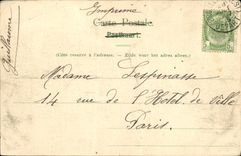 Imprimé
Carte Postale
Postkaart
(Côté réservé à l'adresse. — Zijde voor het adres alleen.)
Guillaume
Madame Lespinasse
14 rue de l'Hotel de Ville
Paris.